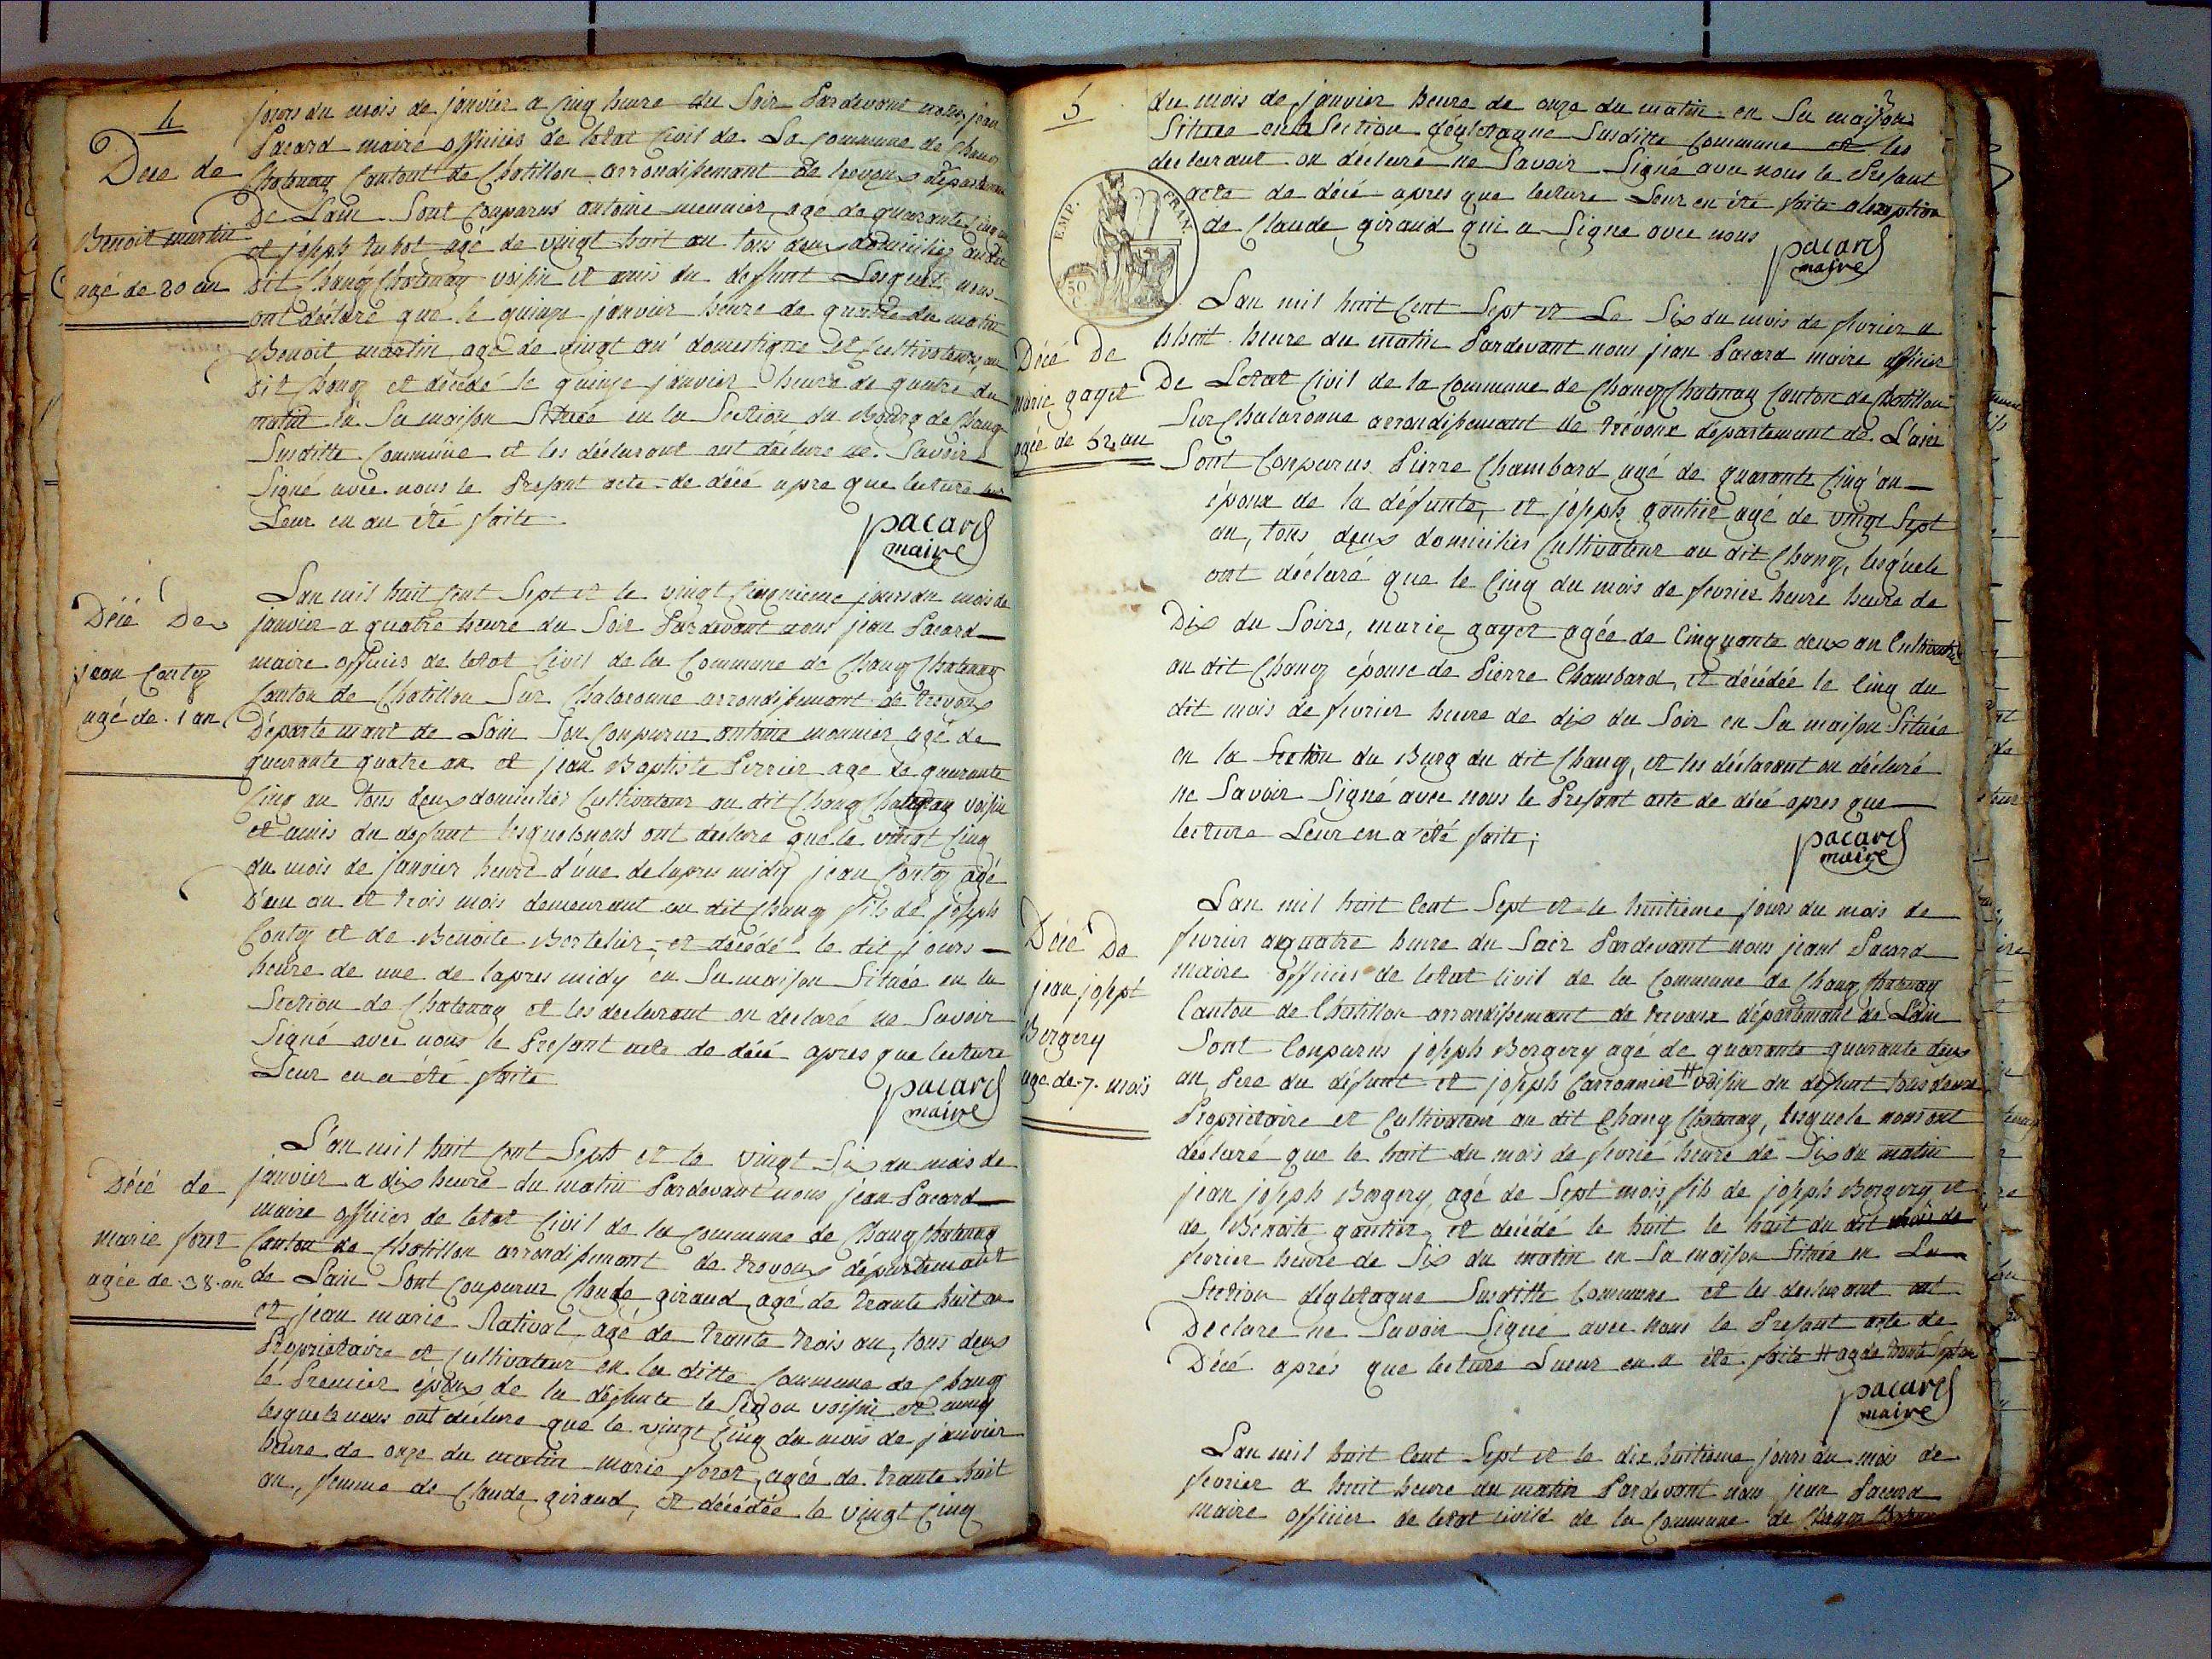 4
jours du mois de janvier a cinq heure du Soir Pardevant nous jean
Pacard maire officier de letat Civil de La Commune de Chang
Chatenay Contont de Chatillon arrondissemant de trevoux départemant
De Lain Sont Conparus antoine meunier agé de quarante cinq
et joseph agé de vingt huit an tous deux domiciliez audit
dit Chang Chatenay voisin et amis du deffunt Lesquel nous
ont déclaré que le quinze janvier heure de quatre du matin
Benoit martin agé de vingt an domestique et Cultivateur au
dit Chang et décédé le quinze janvier heure de quatre du
matin en Sa maison Située en la Section du Bourg de Chang
Susditte Commune et les déclarant ont déclaré ne Savoir
Signé avec nous le Present acte de décé apre que lecture
Leur en au été faite
pacard
maire
Dece de
Benoit martin
agé de 20 an
Lan mil huit cent Sept et le vingt cinquieme jours du mois de
janvier a quatre heure du Soir Pardevant nous jean Pacard
maire officier de letat Civil de la Commune de Chang Chatenay
Canton de Chatillon Sur Chalaronne arrondissemant de trevoux
Département de Lain Son Conparus antoine meunier agé de
quarante quatre an et jean Baptiste Perrier age de quarante
Cinq an tous deux domiciliés Cultivateur au dit Chang Chatenay voisin
et amis du defunt lesquels nous ont déclare que le vingt cinq
du mois de janvier heure d'une de lapres midy jean Contoz agé
D'un an et trois mois demeurant au dit Chang fils de joseph
Contoz et de Benoite Bertelier, et décédé le dit jours
heure de une de lapres midy en Sa maison Située en la
Section de Chatenay et les declarant on declaré ne Savoir
Signé avec nous le Present acte de décé apres que lecture
Leur en a été faite
pacard
maire
Décé De
jean Contoz
agé de 1 an
L'an mil huit cent Sept et le vingt Six du mois de
janvier a dix heure du matin Pardevant nous jean Pacard
maire officier de letat Civil de la Commune de Chang Chatenay
Canton de Chatillon arrondissemant de trevoux département
de Lain Sont Conparus Claude giraud agé de trante huit an
et jean marie Rativat, agé de trante trois an, tous deux
Propriétaire et Cultivateur en la ditte Commune de Chang
le Premier epoux de la défunte le Segon voisin et amy
lesquels nous ont déclare que le vingt Cinq du mois de janvier
heure de onze du matin marie foret, agée de trante huit
an, femme de Claude giraud, et décédée le vingt Cinq
Décé de
marie foret
agée de 38 an
5
du mois de janvier heure de onze du matin en Sa maison
Située en la Section Susditte Commune et les
declarant on déclaré ne Savoir Signé avec nous le Presant
acte de décé apres que lecture Leur en été faite alexeption
de Claude giraud qui a Signe avec nous
pacard
maire
EMP. FRAN.
50
C.
Lan mil huit Cent Sept et Le Six du mois de fevrier a
huit heure du matin Pardevant nous jean Pacard maire officier
De Letat Civil de la Commune de Chang Chatenay Canton de Chatillon
Sur Chalaronne arrondissemant de trévoux département de L'ain
Sont Conparus Pierre Chambard agé de quarante Cinq an
époux de la défunte, et joseph gontié agé de vingt Sept
an, tous deux domiciliés Cultivateur au dit Chang, lesquele
ont déclaré que le Cinq du mois de fevrier heure heure de
Dix du Soirs, marie gayet agée de Cinquante deux an Cultivatrice
au dit Chang épouse de Pierre Chambard, et décédée le Cinq du
dit mois de fevrier heure de dix du Soir en Sa maison Située
en la Section du Burg du dit Chang, et les déclarant on déclaré
ne Savoir Signé avec nous le Present acte de décé apres que
lecture Leur en a été faite;
pacard
maire
Décé De
marie gayet
agée de 52 an
Lan mil huit Cent Sept et le huitieme jours du mois de
fevrier a quatre heure du Soir Pardevant nous jeant Pacard
maire officier de letat Civil de la Commune de Chang Chatenay
Canton de Chatillon arrondissemant de trevoux département de Lain
Sont Conparus joseph Bergery agé de quarante quarante deux
an, Pere du défunt et joseph Carronnier # voisin du defunt tous deux
Propriétaire et Cultivateur au dit Chang Chatenay, lesquele nous ont
déclaré que le huit du mois de fevrié heure de Six du matin
jean joseph Bergery, agé de Sept mois, fils de joseph Bergery et
de Benoite gontier, et décédé le huit le huit du dit mois de
fevrier heure de Six du matin en Sa maison Située en La
Section Susditte Commune et les declarant ont
Declare ne Savoir Signé avec nous le Presant acte de
Décé aprés que lecture Leur en a été faite # agé de trante Sept an
pacard
maire
Décé De
jean josept
Bergery
age de 7 mois
Lan mil huit Cent Sept et le dix huitieme jours du mois de
fevrier a huit heure du matin Pardevant nous jean Pacard
maire officier de letat Civile de la Commune de Chang Chatenay